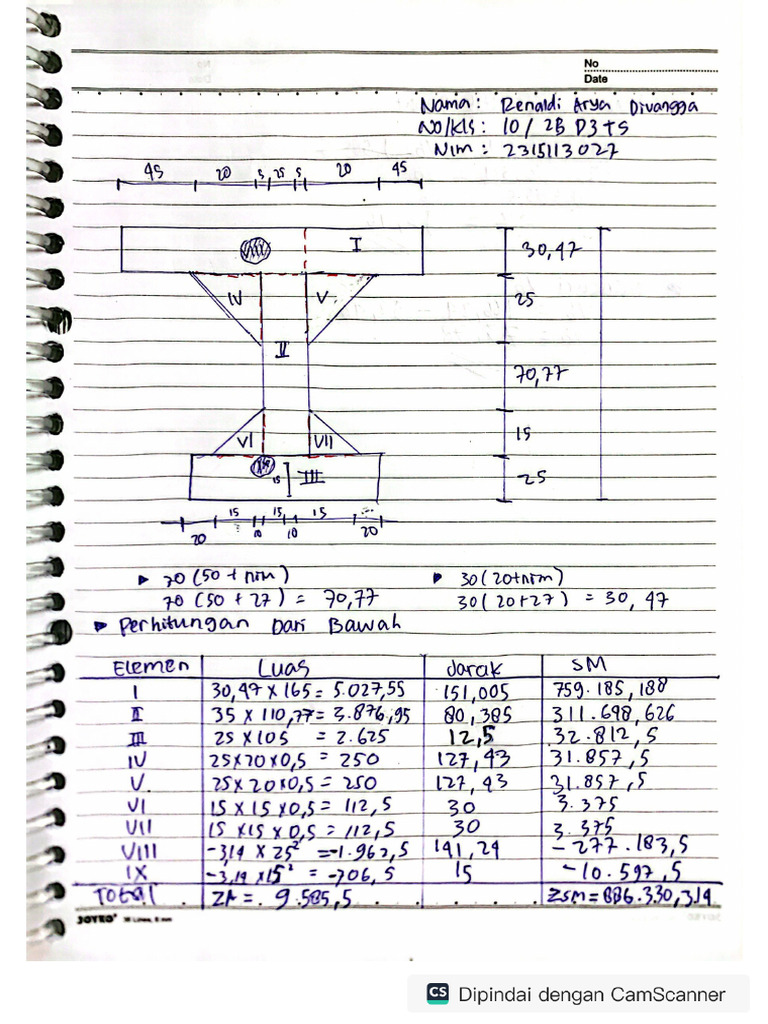 No
Date
Nama : Renaldi Arya Divangga
NO/Kls : 10 / 2B D3 TS
Nim : 2315113027
45 20 5 25 5 20 45
I 30,47
IV V 25
II
70,77
VI VII 15
15 III 25
15 15 15
20 10 10 20
▶ 70 (50 + nim) ▶ 30 (20+nim)
70 (50 + 27) = 70,77 30 (20+27) = 30,47
▶ Perhitungan Dari Bawah
Elemen Luas Jarak SM
I 30,47 x 165 = 5.027,55 151,005 759.185,188
II 35 x 110,77 = 3.876,95 80,385 311.698,626
III 25 x 105 = 2.625 12,5 32.812,5
IV 25x20x0,5 = 250 127,43 31.857,5
V. 25x20x0,5 = 250 127,43 31.857,5
VI 15x15x0,5 = 112,5 30 3.375
VII 15x15x0,5 = 112,5 30 3.375
VIII -3,14 x 25² = -1.962,5 141,24 -277.183,5
IX -3,14 x15² = -706,5 15 -10.597,5
Total ΣA = 9.585,5 ΣSM = 886.330,314
JOYKO® 36 Lines, 8 mm
CS Dipindai dengan CamScanner